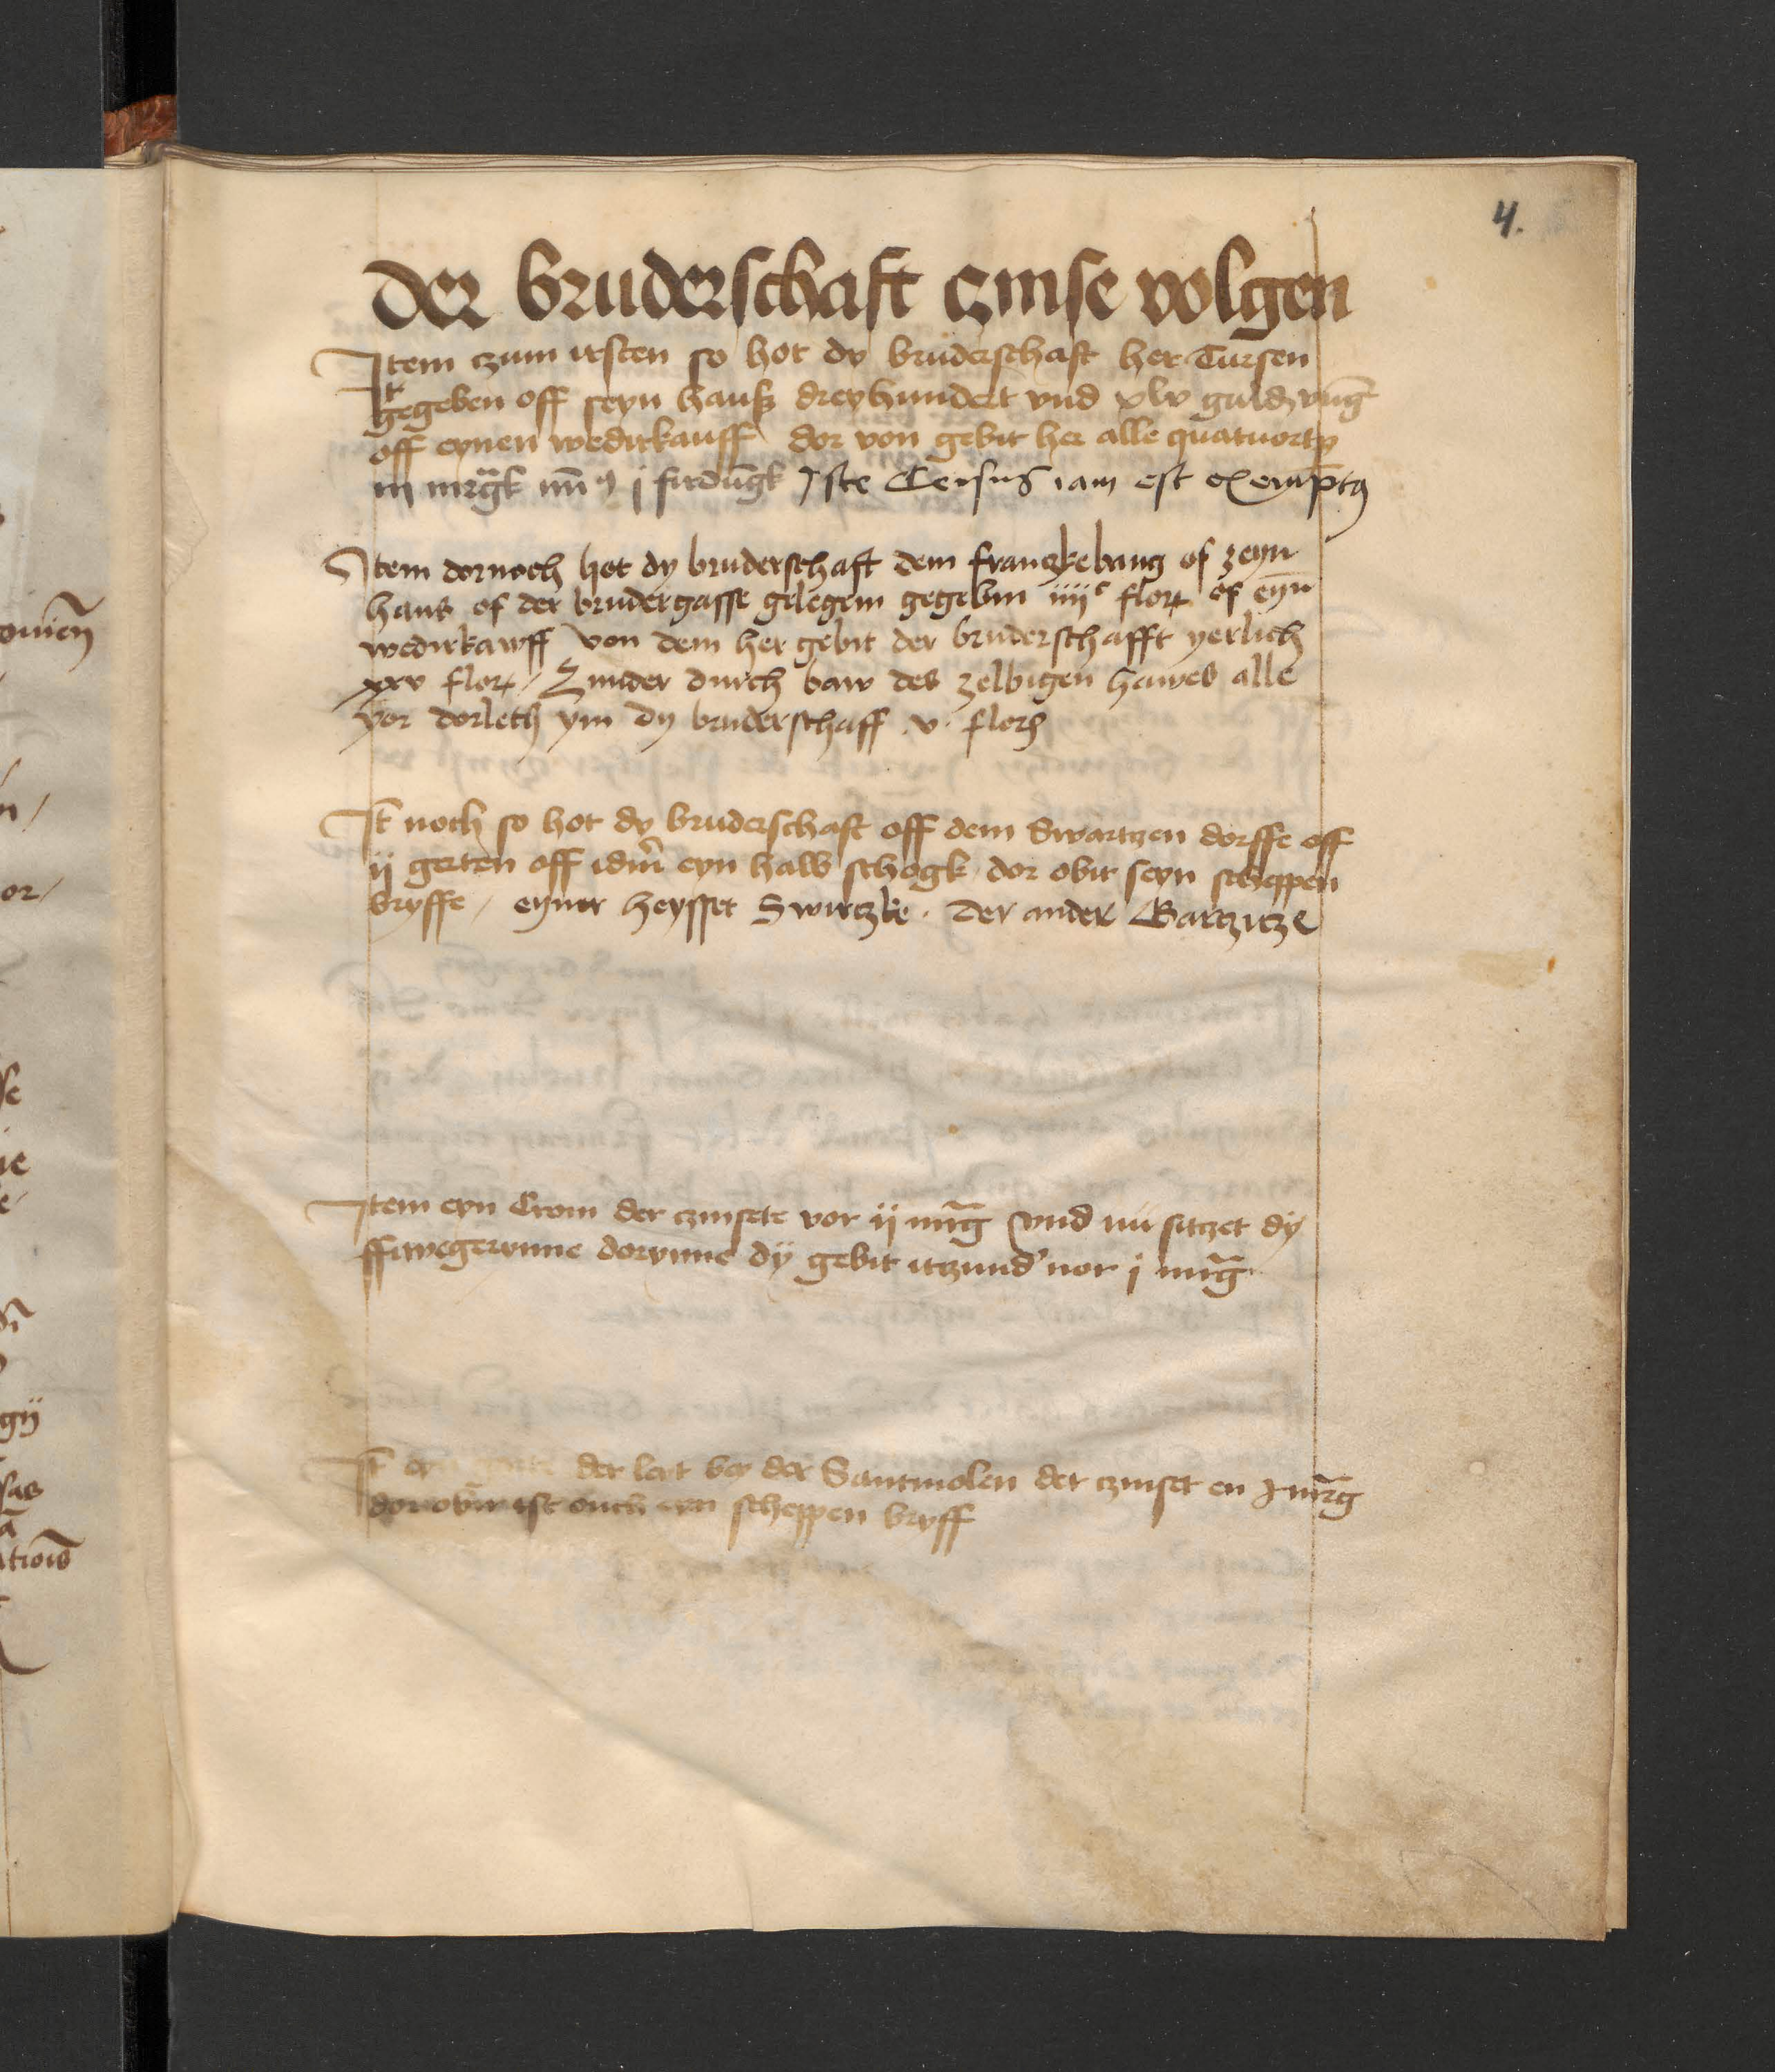 4.
Der bruderschaft czinse volgen
Item czum irsten so hot dy bruderschaft her Tursen
gegeben off seyn hauß dreyhundert vnd xlv guld vng
off eynen wedirkauff dor von gebit her alle quatuortp
iij mrgk mi9 j firdungk Iste Census iam est exemptus
Item dornoch hot dy bruderschaft dem franczkebang of zeyn
haus of der brudergasse gelegem gegebin iiijc flor of eyn
wedirkawff von dem her gebit der bruderschafft yerlich
xxv flor / Zunder durch baw des zelbigen hawes alle
yor dorleth ym dy bruderschaff .v. flor
It noch so hot dy bruderschaft off dem Swartzen dorffe off
ij gerten off idm eyn halb schogk dor obir seyn scheppen
bryffe / eyner heysset Swirczke . der ander Barczicze
Item eyn Crom der czinsete vor ij mrg vnd nu sitzet dy
ffiwegerynne dorynne dy gebit itzund nor j mrg
It eyn garte der leit bey der Santmolen der czinset en j mrg
dor obir ist ouch eyn scheppen bryff